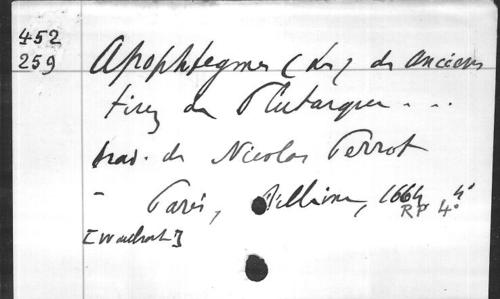 452
259
Apophtegmes (les) des anciens
tirez de Plutarque . . .
trad. de Nicolas Perrot
- Paris, Billaine, 1664, 4°
RP 4°